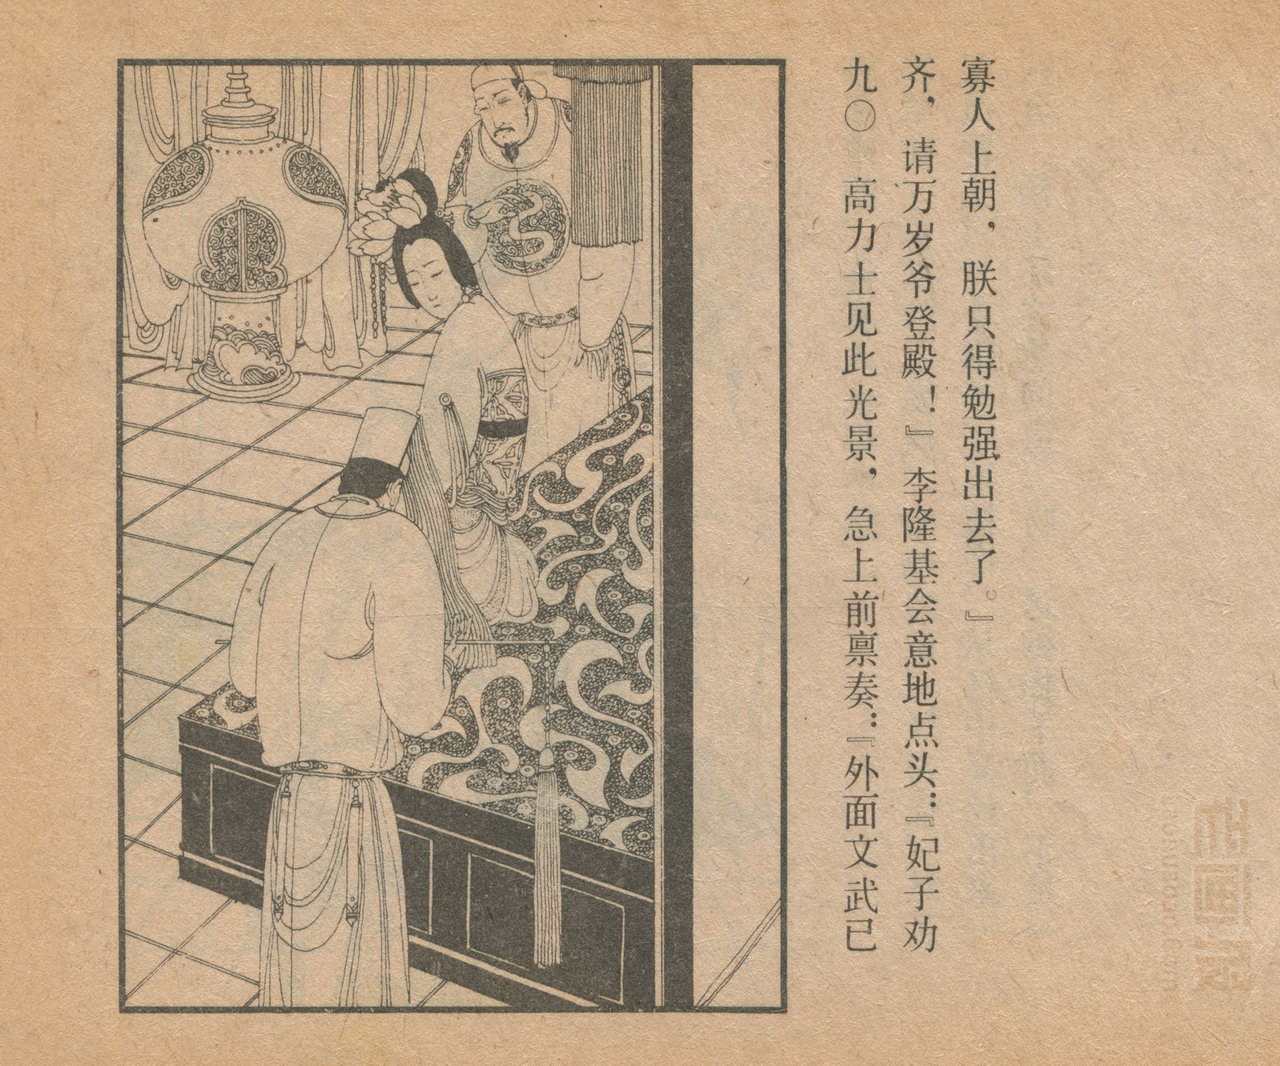 九〇 高力士见此光景，急上前禀奏：『外面文武已
齐，请万岁爷登殿！』李隆基会意地点头：『妃子劝
寡人上朝，朕只得勉强出去了。』